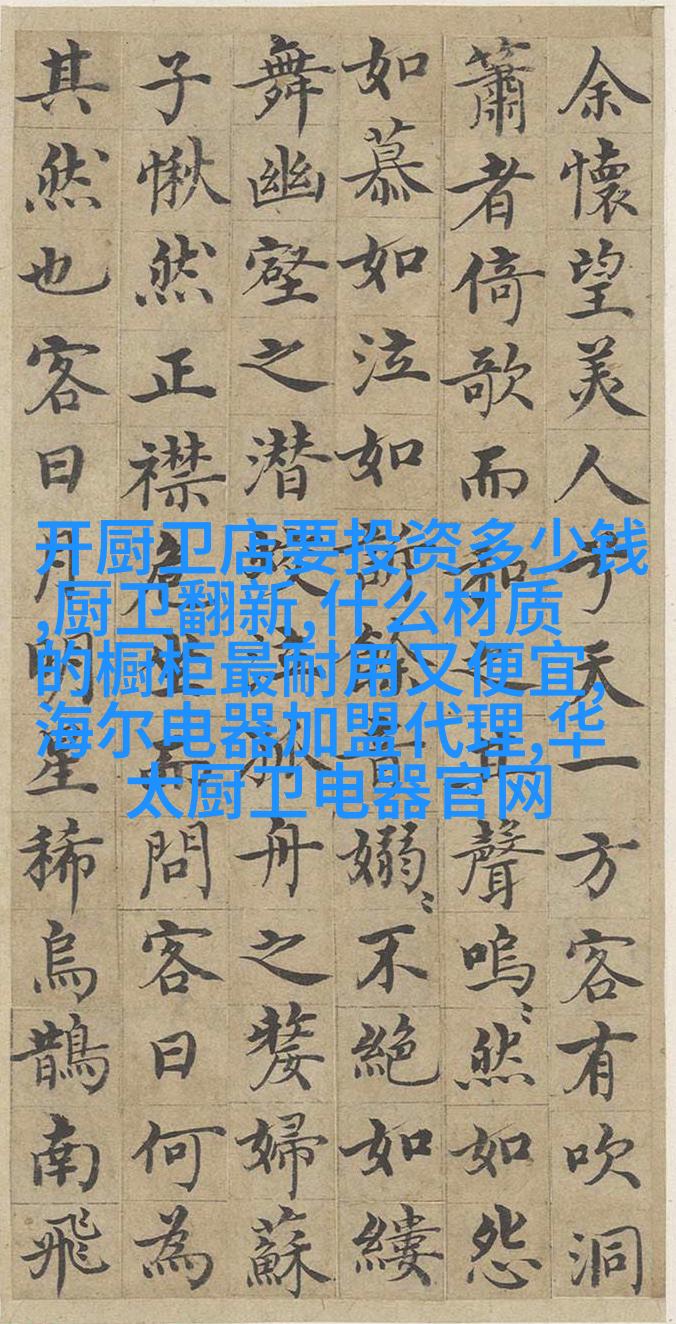 余懷望美人于天一方客有吹洞
簫者倚歌而和之其聲嗚〻然如怨
如慕如泣如訴餘音嫋〻不絕如縷
舞幽壑之潛蛟泣孤舟之嫠婦蘇
子愀然正襟危坐而問客曰何為
其然也客曰月明星稀烏鵲南飛
开厨卫店要投资多少钱
,厨卫翻新,什么材质
的橱柜最耐用又便宜,
海尔电器加盟代理,华
太厨卫电器官网